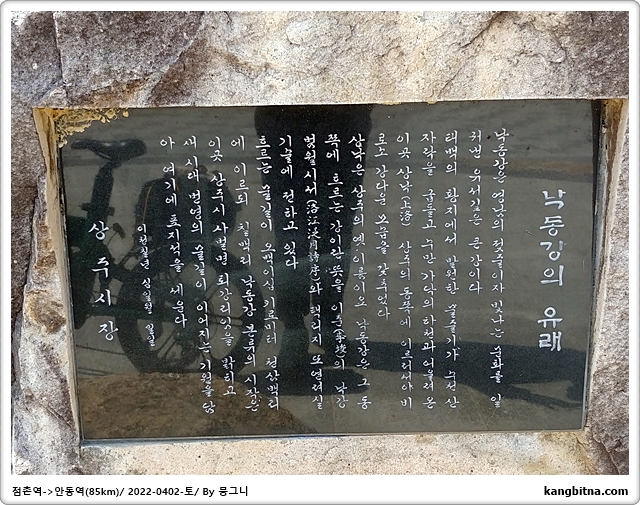 낙동강의 유래
낙동강은 영남의 젖줄이자 빛나는 문화를 일
궈낸 유서깊은 큰 강이다
태백의 황지에서 발원한 물줄기가 산
자락을 굽돌고 수만 가닥의 하천과 어울려 온
이곳 상락(上洛) 상주의 동쪽에 이르러서야 비
로소 강다운 모습을 갖추었다
상락은 상주의 옛 이름이요 낙동강은 그 동
쪽에 흐르는 강이란 뜻을 이준(李埈)의 낙강
범월시서(洛江泛月詩序)와 택리지 또 연려실
기술에 전하고 있다
흐르는 물길이 오백이십 키로미터 천삼백리
에 이르되 칠백리 낙동강 본류의 시작은
이곳 상주시 사벌면 퇴강리임을 밝히고
새 시대 번영의 물길이 이어지는 기원을 담
아 여기에 표지석을 세운다
이천 년 십일월 일
상주시장
점촌역->안동역(85km)/ 2022-0402-토/ By 뭉그니
kangbitna.com